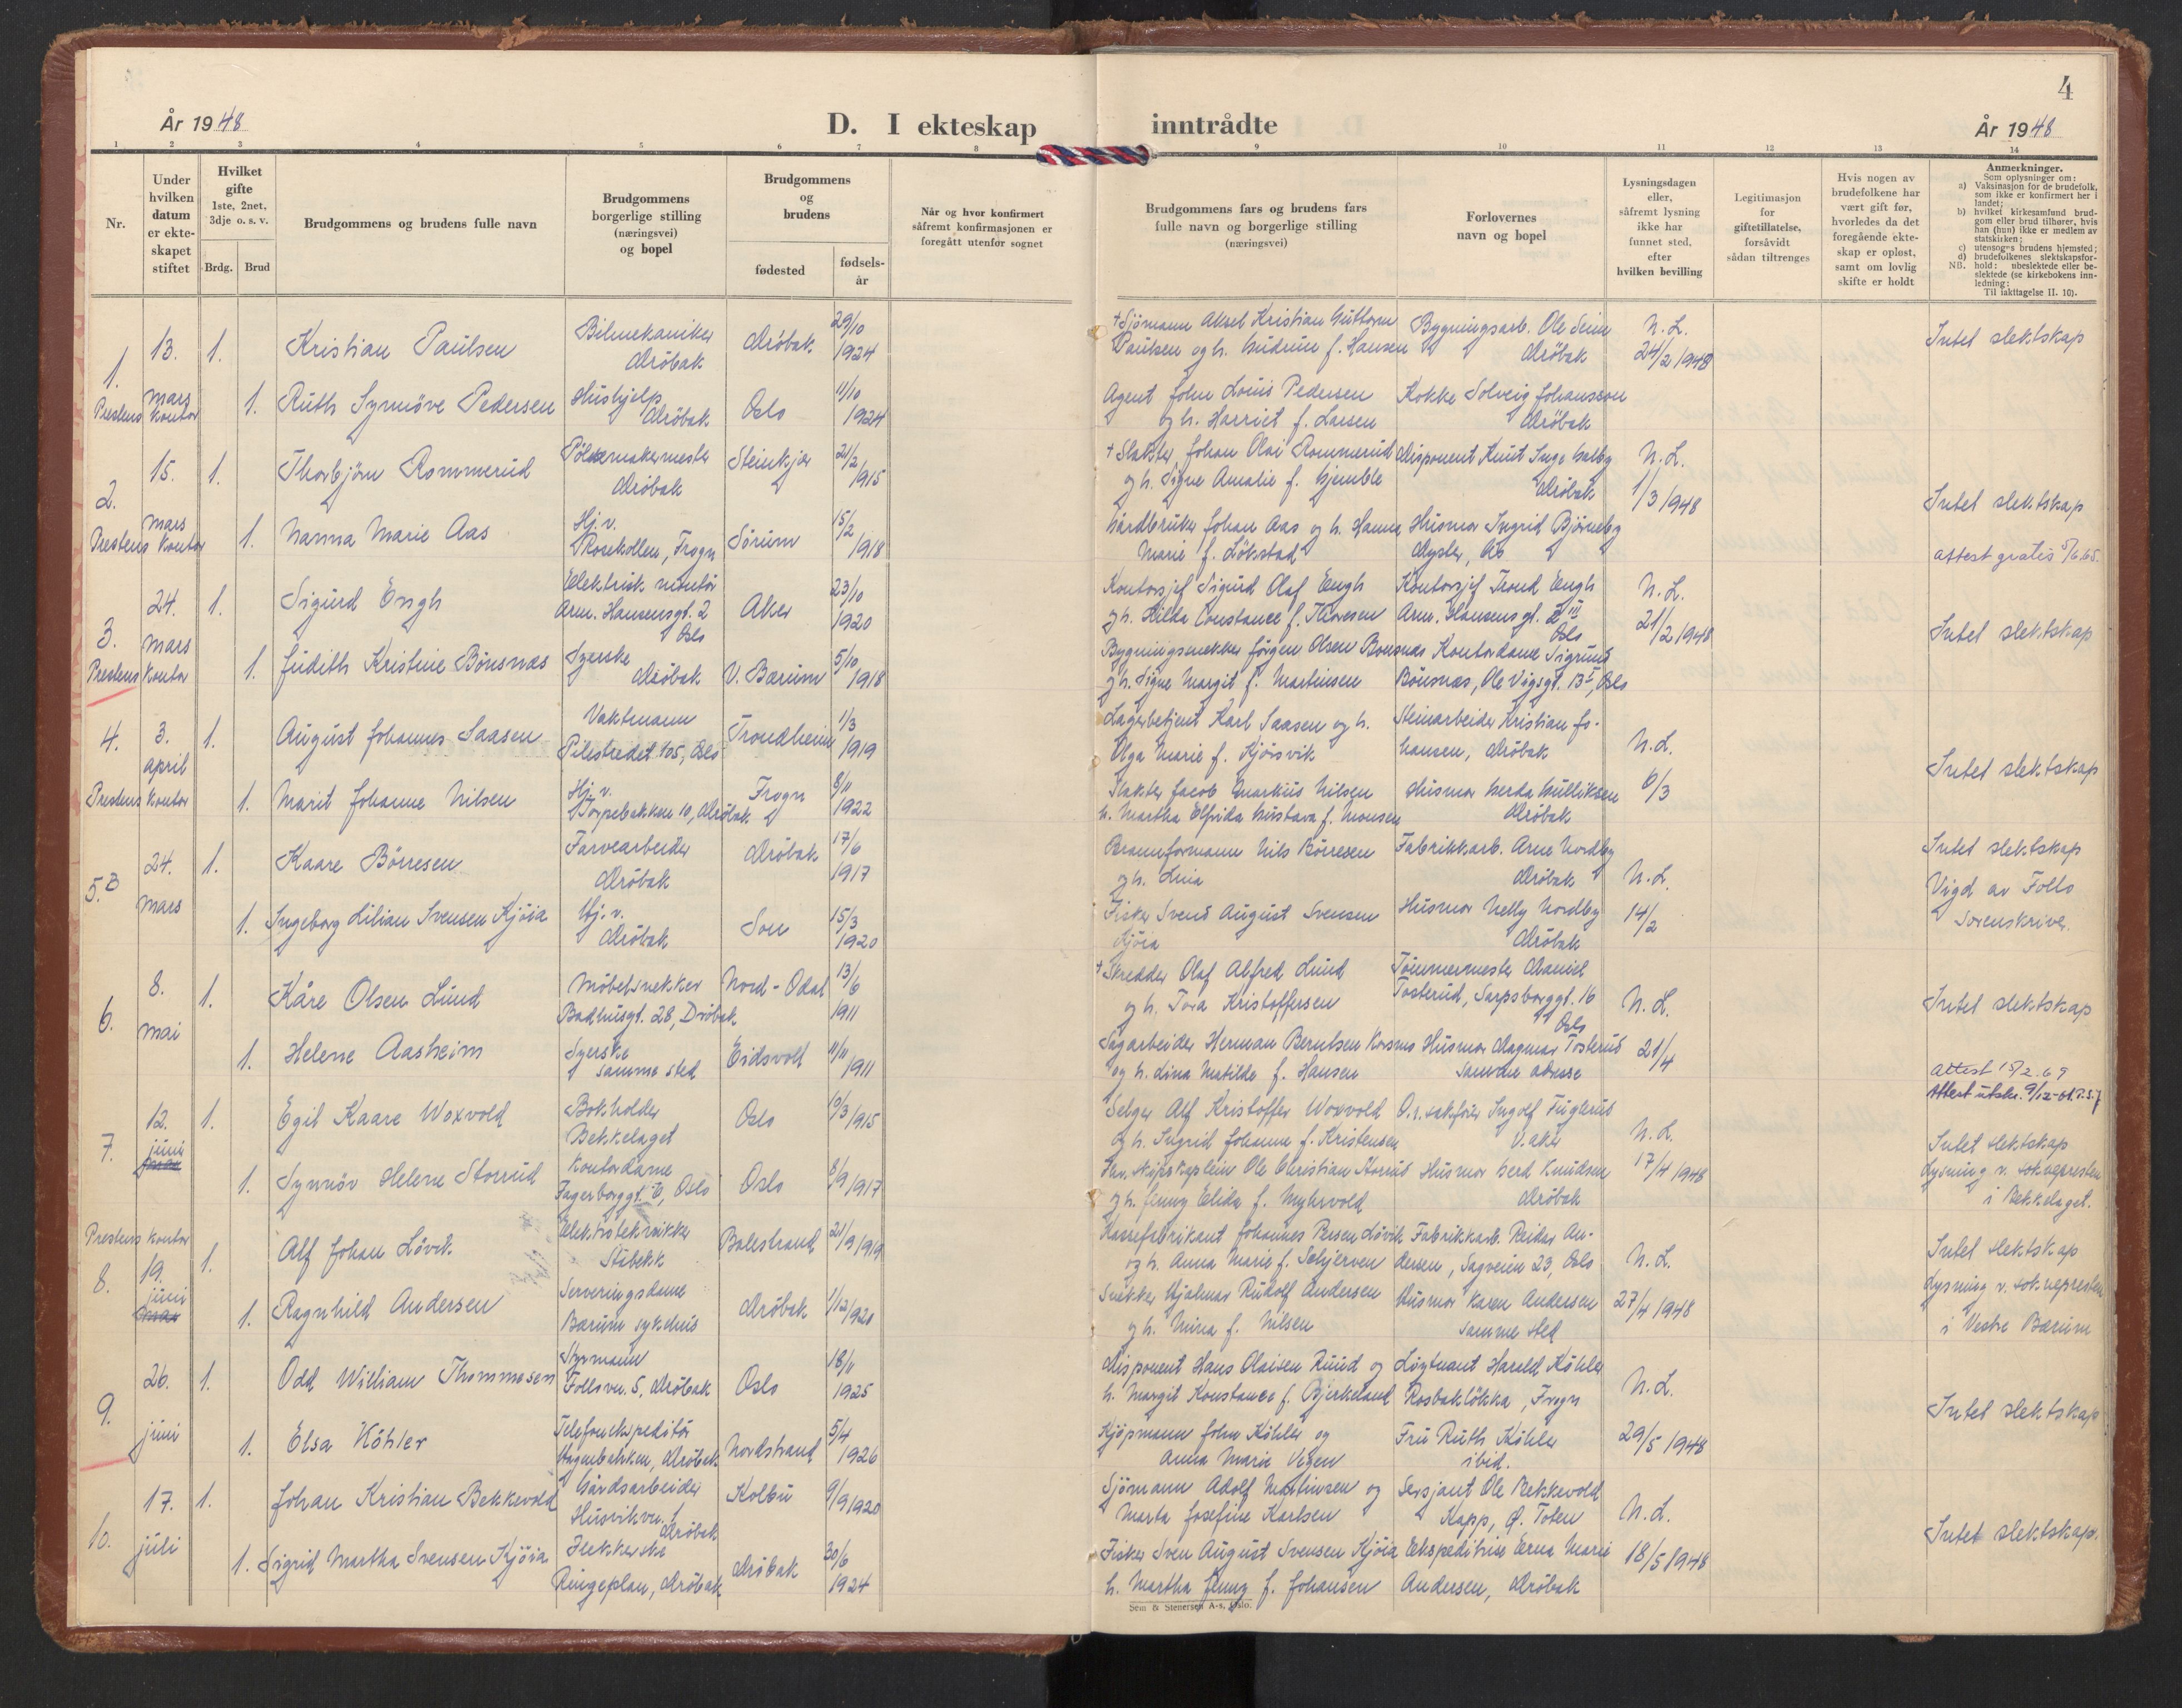 4
År 1948
D. I ekteskap
inntrådte
År 1948
1 2 3 4 5 6 7 8 9 10 11 12 13 14
Nr.
Under
hvilken
datum
er ekte-
skapet
stiftet
Hvilket
gifte
1ste, 2net,
3dje o. s. v.
Brdg.
Brud
Brudgommens og brudens fulle navn
Brudgommens
borgerlige stilling
(næringsvei)
og bopel
Brudgommens
og
brudens
fødested
fødsels-
år
Når og hvor konfirmert
såfremt konfirmasjonen er
foregått utenfor sognet
Brudgommens fars og brudens fars
fulle navn og borgerlige stilling
(næringsvei)
Forlovernes
navn og bopel
Lysningsdagen
eller,
såfremt lysning
ikke har
funnet sted,
efter
hvilken bevilling
Legitimasjon
for
giftetillatelse,
forsåvidt
sådan tiltrenges
Hvis nogen av
brudefolkene har
vært gift før,
hvorledes da det
foregående ekte-
skap er opløst,
samt om lovlig
skifte er holdt
Anmerkninger.
Som oplysninger om:
a) Vaksinasjon for de brudefolk,
som ikke er konfirmert her i
landet;
b) hvilket kirkesamfund brud-
gom eller brud tilhører, hvis
han (hun) ikke er medlem av
statskirken;
c) utensogns brudens hjemsted;
d) brudefolkenes slektskapsfor-
NB. hold: ubeslektede eller be-
slektede (se kirkebokens inn-
ledning:
Til iakttagelse II. 10).
1.
13.
mars
Prestens kontor
1.
Kristian Paulsen
Bilmekaniker
Drøbak
Drøbak
29/10
1924
+ Sjømann Aksel Kristian Guttorm
Paulsen og h. Gudrun f. Hansen
Bygningsarb. Ole Seim
Drøbak
N.L.
24/2 1948
Intet slektskap
1.
Ruth Synnöve Pedersen
Hushjelp
Drøbak
Oslo
11/10
1924
Agent John Louis Pedersen
og h. Harriet f. Larsen
Kokke Solveig Johansson
Drøbak
2.
15.
mars
Prestens kontor
1.
Thorbjörn Rommerud
Pölsemakermester
Drøbak
Steinkjer
21/2
1915
+ Slakter Johan Olai Rommerud
og h. Signe Amalie f. Gjemble
Disponent Knut Inge Galby
Drøbak
N.L.
1/3 1948
Intet slektskap
1.
Nanna Marie Aas
Hj.v.
Rosekollen, Frogn
Sörum
15/2
1918
Gårdbruker Johan Aas og h. Hanna
Marie f. Lökstad
Husmor Ingrid Björneby
Dyster, Ås
attest gratis 5/6.65.
3.
24.
mars
Prestens kontor
1.
Sigurd Engh
Elektrisk montør
Arm. Hansensgt. 2
Oslo
Aker
23/10
1920
Kontorsjef Sigurd Olaf Engh
og h. Hilda Constance f. Thoresen
Kontorsjef Trond Engh
Arm. Hansens gt. 2 III
Oslo
N.L.
21/2 1948
Intet slektskap
1.
Judith Kristine Bönsnæs
Syerske
Drøbak
V. Bærum
5/10
1918
Bygningssnekker Jörgen Olsen Bonsnæs
og h. Signe Margit f. Martinsen
Kontordame Sigrund
Bönsnæs, Ole Vigsgt. 13 I, Oslo
4.
3.
april
Prestens kontor
1.
August Johannes Saasen
Vaktmann
Pilestredet 105, Oslo
Trondheim
1/3
1919
Lagerbetjent Karl Saasen og h.
Olga Marie f. Kjösvik
Steinarbeider Kristian Jo-
hansen, Drøbak
N.L.
6/3
Intet slektskap
1.
Marit Johanne Nilsen
Hj.v.
Torpebakken 10, Drøbak
Frogn
8/11
1922
Slakter Jacob Markus Nilsen
h. Martha Elfrida Gustava f. Monsen
Husmor Gerda Gulliksen
Drøbak
5. B
24.
mars
1.
Kaare Börresen
Farvearbeider
Drøbak
Drøbak
17/6
1917
Brannformann Nils Börresen
og h. Lina
Fabrikkarb. Arne Nordby
Drøbak
N.L.
14/2
Intet slektskap
Vigd av Follo
Sorenskriver.
1.
Ingeborg Lilian Svensen Kjöia
Hj.v.
Drøbak
Son
15/3
1920
Fisker Svend August Svensen
Kjöia
Husmor Nelly Nordby
Drøbak
6.
8.
mai
1.
Kåre Olsen Lund
Möbelsnekker
Badhusgt. 28, Drøbak
Nord-Odal
13/6
1911
+ Skredder Olaf Alfred Lund
og h. Tora Kristoffersen
Tömmermester Daniel
Tosterud, Sarpsborggt. 16
Oslo
N.L.
21/4
Intet slektskap
1.
Helene Aasheim
Syerske
samme sted
Eidsvoll
11/11
1911
Sagarbeider Herman Berntsen Korsmo
og h. Lina Matilde f. Hansen
Husmor Dagmar Tosterud
samme adresse
attest 13/2.69
Attest utskr. 9/12-
7.
12.
juni
1.
Egil Kaare Woxvold
Bokholder
Bekkelaget
Oslo
10/3 1915
Selger Alf Kristoffer Woxvold
og h. Ingrid Johanne f. Kristensen
O.r.sakfører Ingolf Fuglerud
V. Aker
N.L.
17/4 1948
Intet slektskap
Lysning v. sokneprestene
i Bekkelaget.
1.
Synnöv Helene Storrud
Kontordame
Fagerborggt. 6, Oslo
Oslo
8/9 1917
Skipskaptein Ole Christian Storrud
og h. Jenny Elida f. Myhrvold
Husmor Gerd Knudsen
Drøbak
Prestens kontor
8.
19.
juni
1.
Alf Johan Lövik
Elektrotekniker
Stabekk
Balestrand
21/9 1919
Kassefabrikant Johannes Persen Lövik
og h. Anna Marie f. Schjerven
Fabrikkarb. Reidar An-
dersen, Sagveien 23, Oslo
N.L.
27/4 1948
Intet slektskap
Lysning v. sokneprestene
i Vestre Bærum
1.
Ragnhild Andersen
Serveringsdame
Bærum sykehus
Drøbak
1/12 1920
Snekker Hjalmar Rudolf Andersen
og h. Mina f. Nilsen
Husmor Karen Andersen
samme sted
9.
26.
juni
1.
Odd William Thommesen
Styrmann
Follovn. 5, Drøbak
Oslo
18/11
1925
Disponent Hans Olaisen Ruud og
h. Margit Konstance f. Bjerkeland
Löytnant Harald Köhler
Rosbaklökka, Frogn
N.L.
29/5 1948
Intet slektskap
1.
Elsa Köhler
Telefonekspeditør
Hagenbakken, Drøbak
Nordstrand
5/4
1926
Kjöpmann John Köhler og
Anna Marie Vegen
Fru Ruth Köhler
ibid.
10.
17.
juli
1.
Johan Kristian Bekkevold
Gårdsarbeider
Husvikvn. 1
Drøbak
Kolbu
9/9 1920
Sjömann Adolf Martinsen og
Marta Josefine Karlsen
Sersjant Ole Bekkevold
Kapp, Ø. Toten
N.L.
18/5 1948
Intet slektskap.
1.
Sigrid Martha Svensen Kjöia
Ringeplan, Drøbak
Drøbak
30/6
1924
Fisker Sven August Svensen Kjöia
h. Martha Jenny f. Johansen
Ekspeditrise Erna Marie
Andersen, Drøbak
Sem & Stenersen A-s, Oslo.